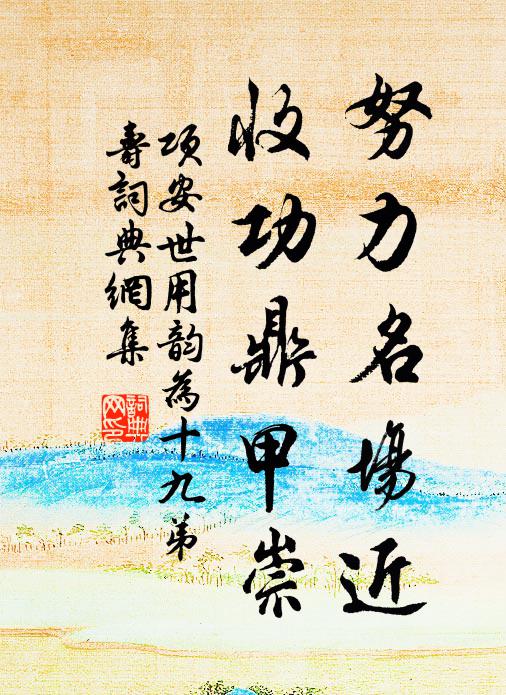 努力名場近
收功鼎甲崇
項安世用韵為十九弟
壽詞典網集
詞典
网印